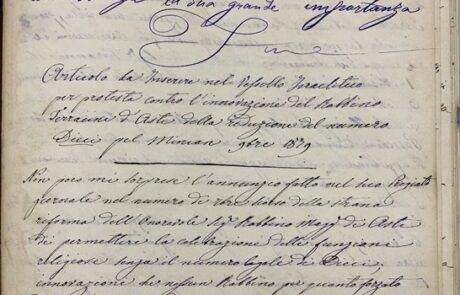 ed sua grande importanza
Fine
Articolo da Inserire nel Vessillo Israelitico
per protesta contro l'innovazione del Rabbino
Terracini d'Asti della riduzione del numero
Dieci pel Minian 9bre 1879
Non poco mi sorprese l'annunzio fatto nel suo Pregiato
giornale nel numero di scorso della strana
riforma dell'Onorevole Sig. Rabbino Magg. di Asti
di permettere la celebrazione delle funzioni
religiose senza il numero legale di Dieci,
innovazione che nessun Rabbino per quanto forzato